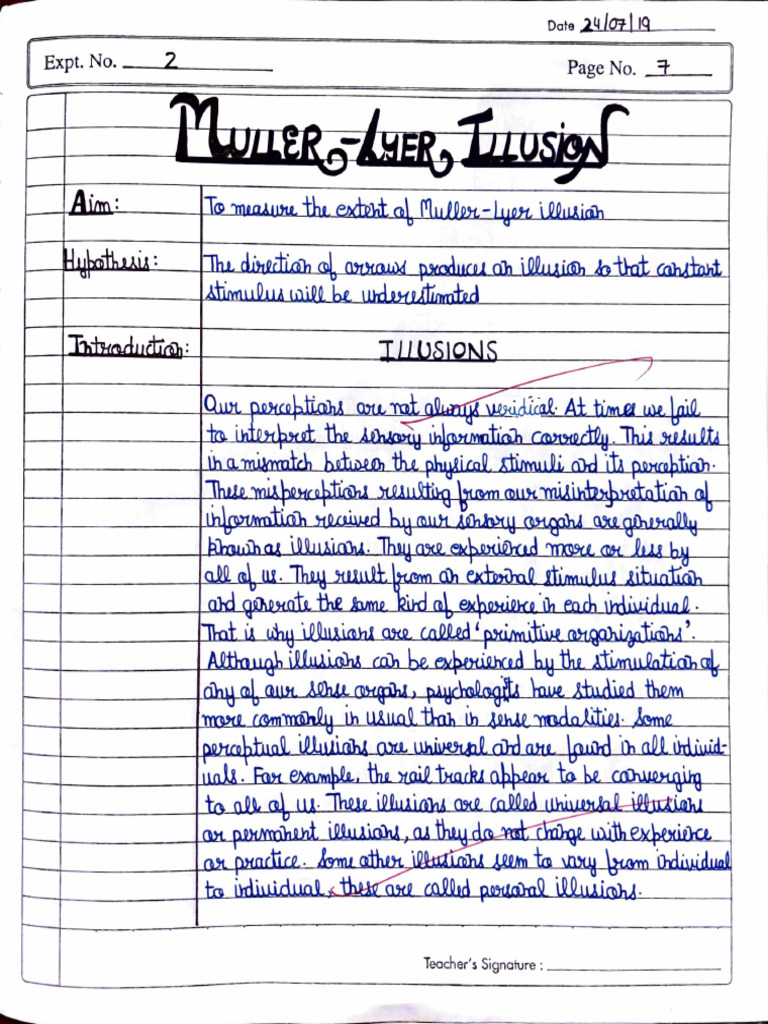 Date 24/07/19
Expt. No. 2
Page No. 7
MULLER-LYER ILLUSION
Aim: To measure the extent of Muller-Lyer illusion
Hypothesis: The direction of arrows produces an illusion so that constant
stimulus will be underestimated
Introduction: ILLUSIONS
Our perceptions are not always veridical. At times we fail
to interpret the sensory information correctly. This results
in a mismatch between the physical stimuli and its perception.
These misperceptions resulting from our misinterpretation of
information received by our sensory organs are generally
known as illusions. They are experienced more or less by
all of us. They result from an external stimulus situation
and generate the same kind of experience in each individual.
That is why illusions are called 'primitive organizations'.
Although illusions can be experienced by the stimulation of
any of our sense organs, psychologists have studied them
more commonly in usual than in sense modalities. Some
perceptual illusions are universal and are found in all individ-
uals. For example, the rail tracks appear to be converging
to all of us. These illusions are called universal illusions
or permanent illusions, as they do not change with experience
or practice. Some other illusions seem to vary from individual
to individual, these are called personal illusions.
Teacher's Signature :